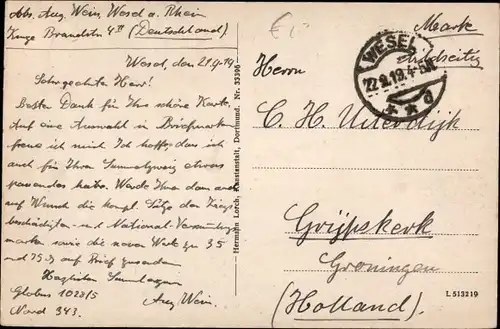 Abs. Aug. Wein, Wesel a. Rhein
Lange Brandstr 4 II (Deutschland)
Wesel, den 21.9.19
Sehr geehrter Herr!
Besten Dank für Ihre schöne Karte.
Auf eine Auswahl in Briefmark
freue ich mich. Ich hoffe, das ich
auch für Ihren Sammelzweig etwas
passendes habe. Werde Ihnen dann auch
auf Wunsch die kompl. Sätze der Kriegs
beschädigten und National-Versammlungs
marken sowie die neuen Werte zu 35
und 75 auf Brief zusenden
Herzlichen Sammlergruss
Globus 10285 Aug Wein.
Nord 343.
Hermann Lorch, Kunstanstalt, Dortmund. Nr. 33396
Marke
Rückseitig
WESEL
22.9.19.4-5N.
* * d
Herrn
C. H. Uiterdijk
Grijpskerk
Groningen
(Holland.)
L 513219